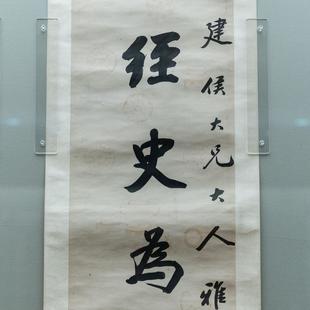 建侯大兄大人雅
经史為